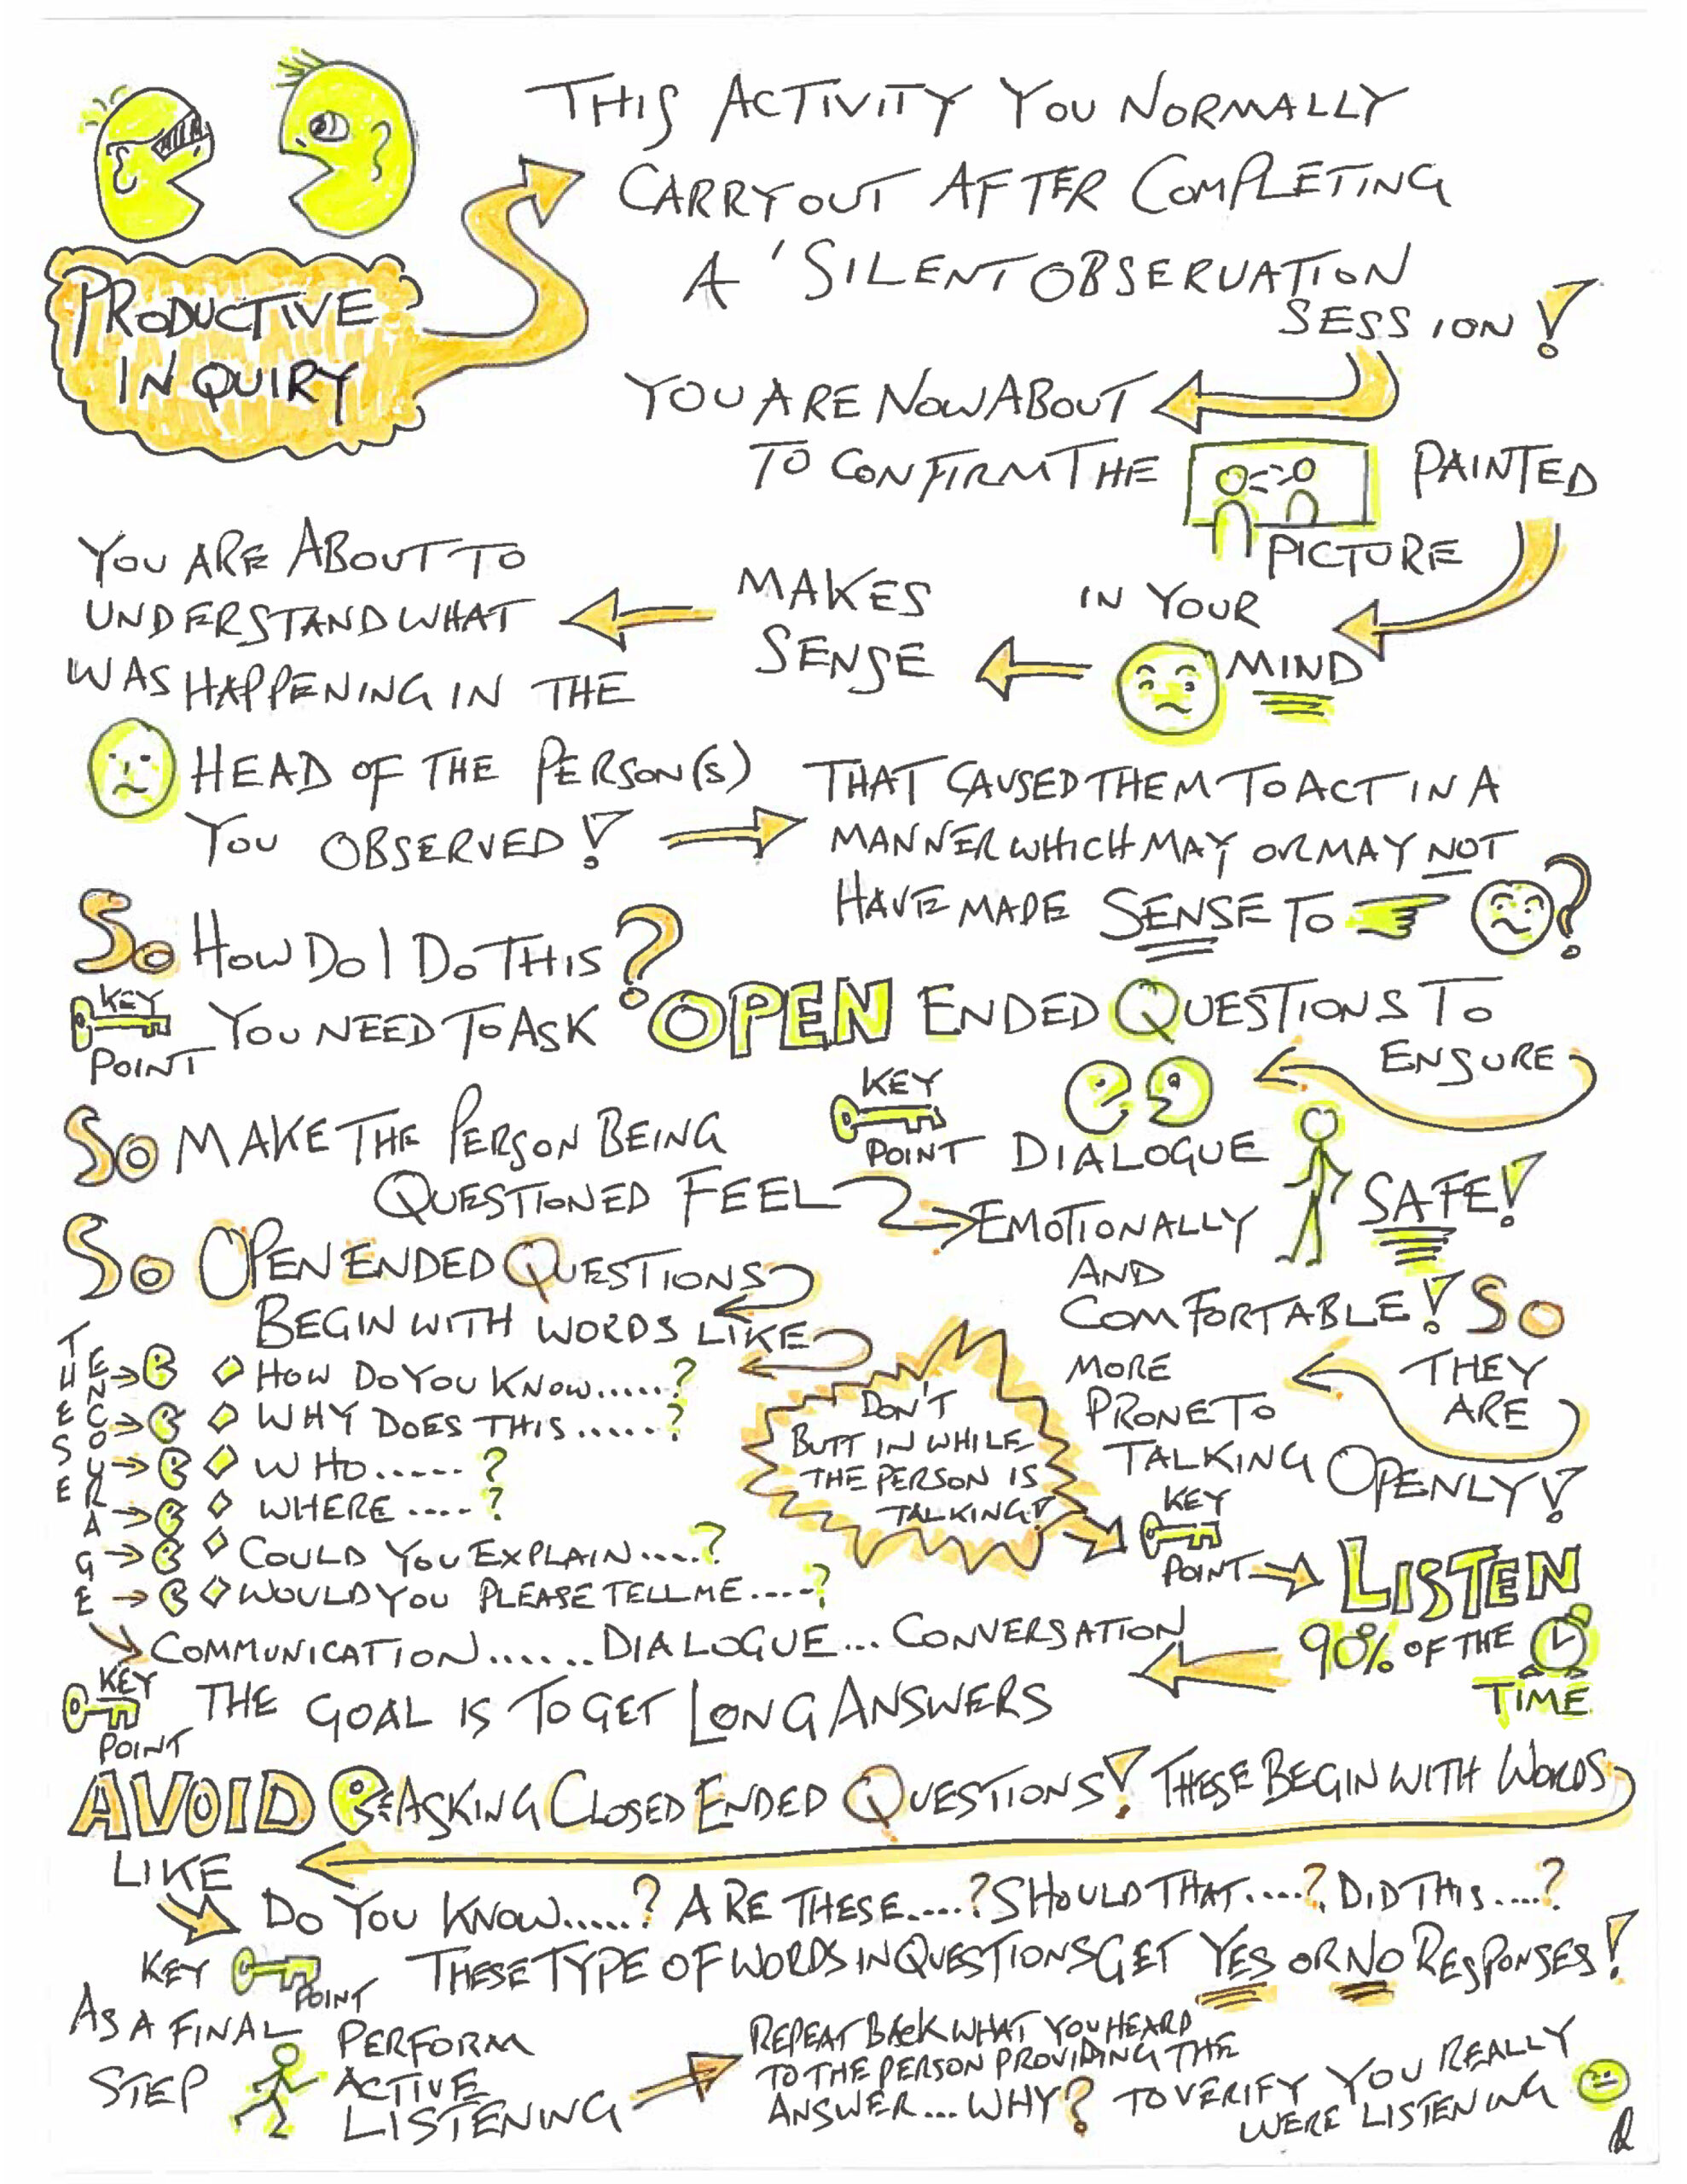 PRODUCTIVE
INQUIRY
THIS ACTIVITY YOU NORMALLY
CARRY OUT AFTER COMPLETING
A 'SILENT OBSERVATION
SESSION!
YOU ARE NOW ABOUT
TO CONFIRM THE
PAINTED
PICTURE
IN YOUR
MIND
MAKES
SENSE
YOU ARE ABOUT TO
UNDERSTAND WHAT
WAS HAPPENING IN THE
HEAD OF THE PERSON(S)
YOU OBSERVED!
THAT CAUSED THEM TO ACT IN A
MANNER WHICH MAY OR MAY NOT
HAVE MADE SENSE TO ?
SO HOW DO I DO THIS?
KEY
POINT
YOU NEED TO ASK OPEN ENDED QUESTIONS TO
ENSURE
KEY
POINT
DIALOGUE
SO MAKE THE PERSON BEING
QUESTIONED FEEL
EMOTIONALLY
SAFE!
AND
COMFORTABLE! SO
THEY
ARE
MORE
PRONE TO
TALKING OPENLY!
SO OPEN ENDED QUESTIONS
BEGIN WITH WORDS LIKE
THESE
ENCOURAGE
HOW DO YOU KNOW.....?
WHY DOES THIS.....?
WHO.....?
WHERE....?
COULD YOU EXPLAIN....?
WOULD YOU PLEASE TELL ME....?
DON'T
BUTT IN WHILE
THE PERSON IS
TALKING!
KEY
POINT
LISTEN
90% OF THE
TIME
COMMUNICATION......DIALOGUE...CONVERSATION
KEY
POINT
THE GOAL IS TO GET LONG ANSWERS
AVOID ASKING CLOSED ENDED QUESTIONS! THESE BEGIN WITH WORDS
LIKE
DO YOU KNOW.....? ARE THESE.....? SHOULD THAT....? DID THIS....?
KEY
POINT
THESE TYPE OF WORDS IN QUESTIONS GET YES OR NO RESPONSES!
AS A FINAL
STEP
PERFORM
ACTIVE
LISTENING
REPEAT BACK WHAT YOU HEARD
TO THE PERSON PROVIDING THE
ANSWER...WHY? TO VERIFY YOU REALLY
WERE LISTENING